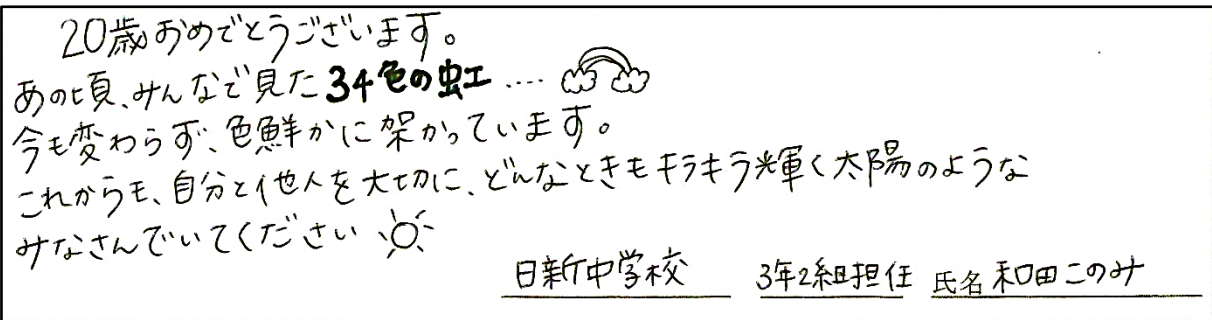 20歳おめでとうございます。
あの頃、みんなで見た34色の虹....
今も変わらず、色鮮かに架かっています。
これからも、自分と他人を大切に、どんなときもキラキラ輝く太陽のような
みなさんでいてください
日新中学校 3年2組担任 氏名 和田このみ